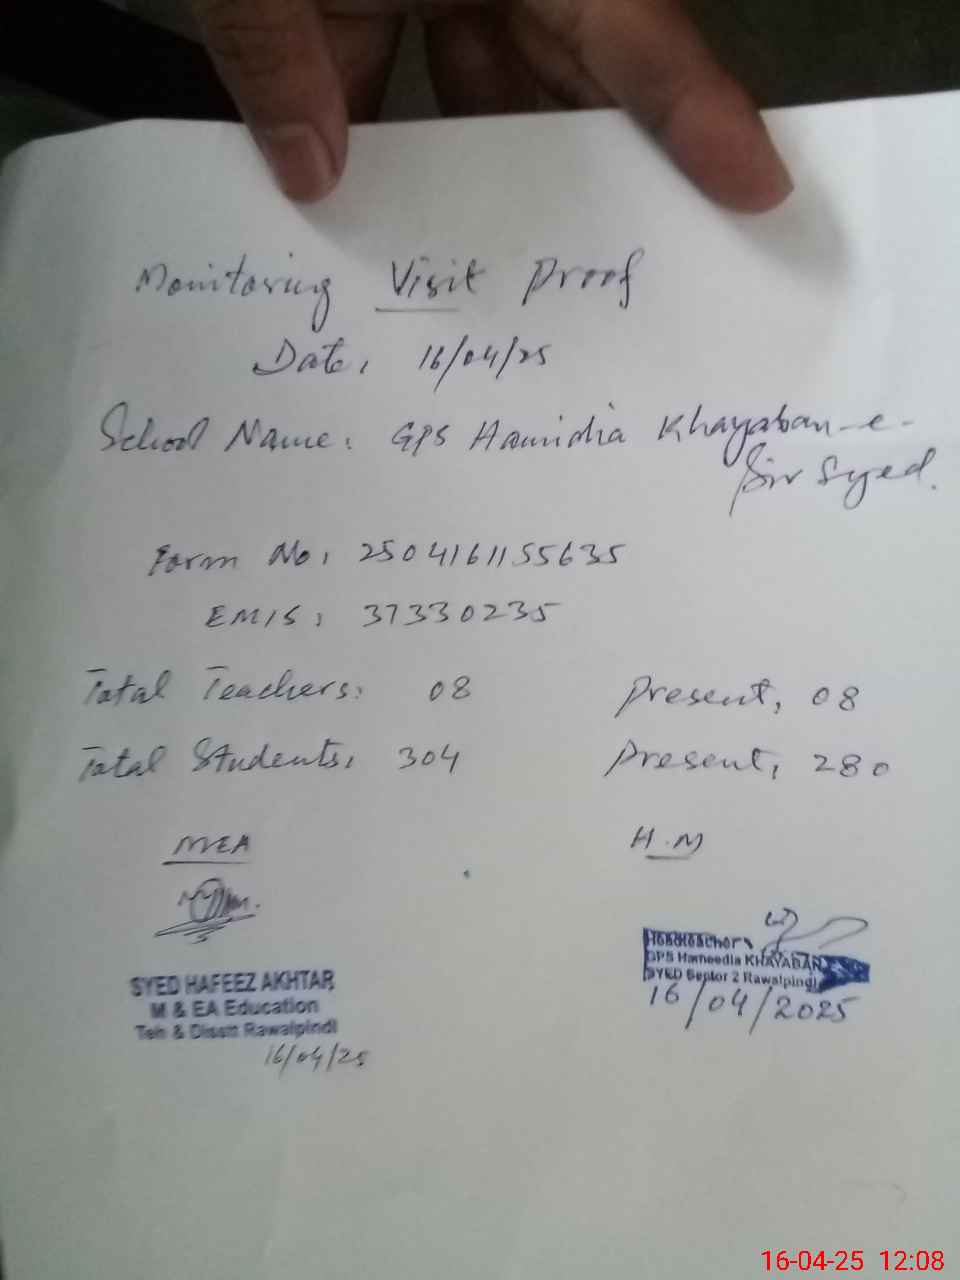 Monitoring Visit Proof
Date, 16/04/25
School Name: GPS Hamidia Khayaban-e-
Sir Syed.
Form No, 2504161155635
EMIS, 37330235
Total Teachers: 08 Present, 08
Total Students, 304 Present, 280
MEA H.M
SYED HAFEEZ AKHTAR
M & EA Education
Teh & Disstt Rawalpindi
16/04/25
Headteacher
GPS Hameedia KHAYABAN
SYED Sector 2 Rawalpindi
16/04/2025
16-04-25 12:08